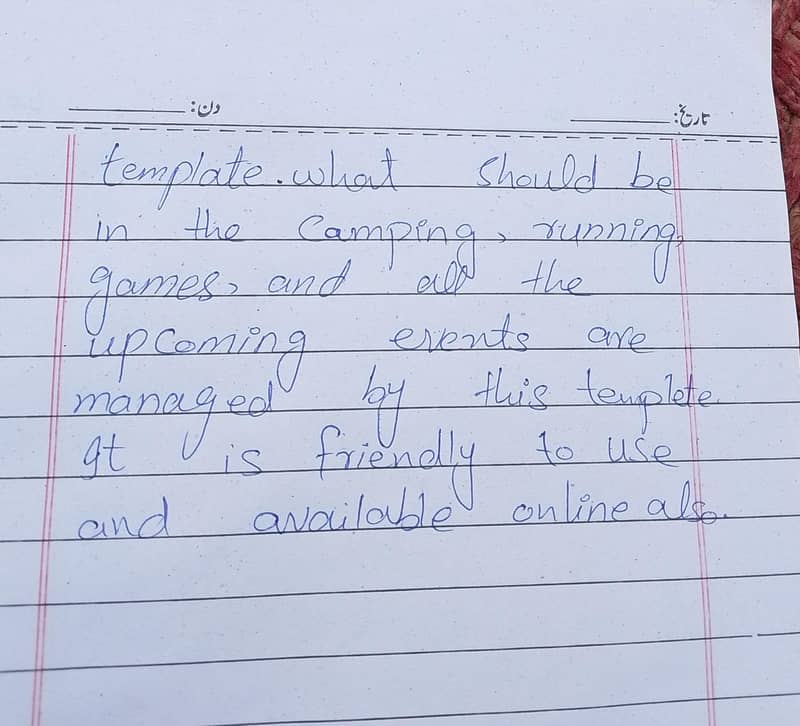 دن: تاریخ:
template. what should be
in the camping, running,
games, and all the
upcoming events are
managed by this templete.
It is friendly to use
and available online also.